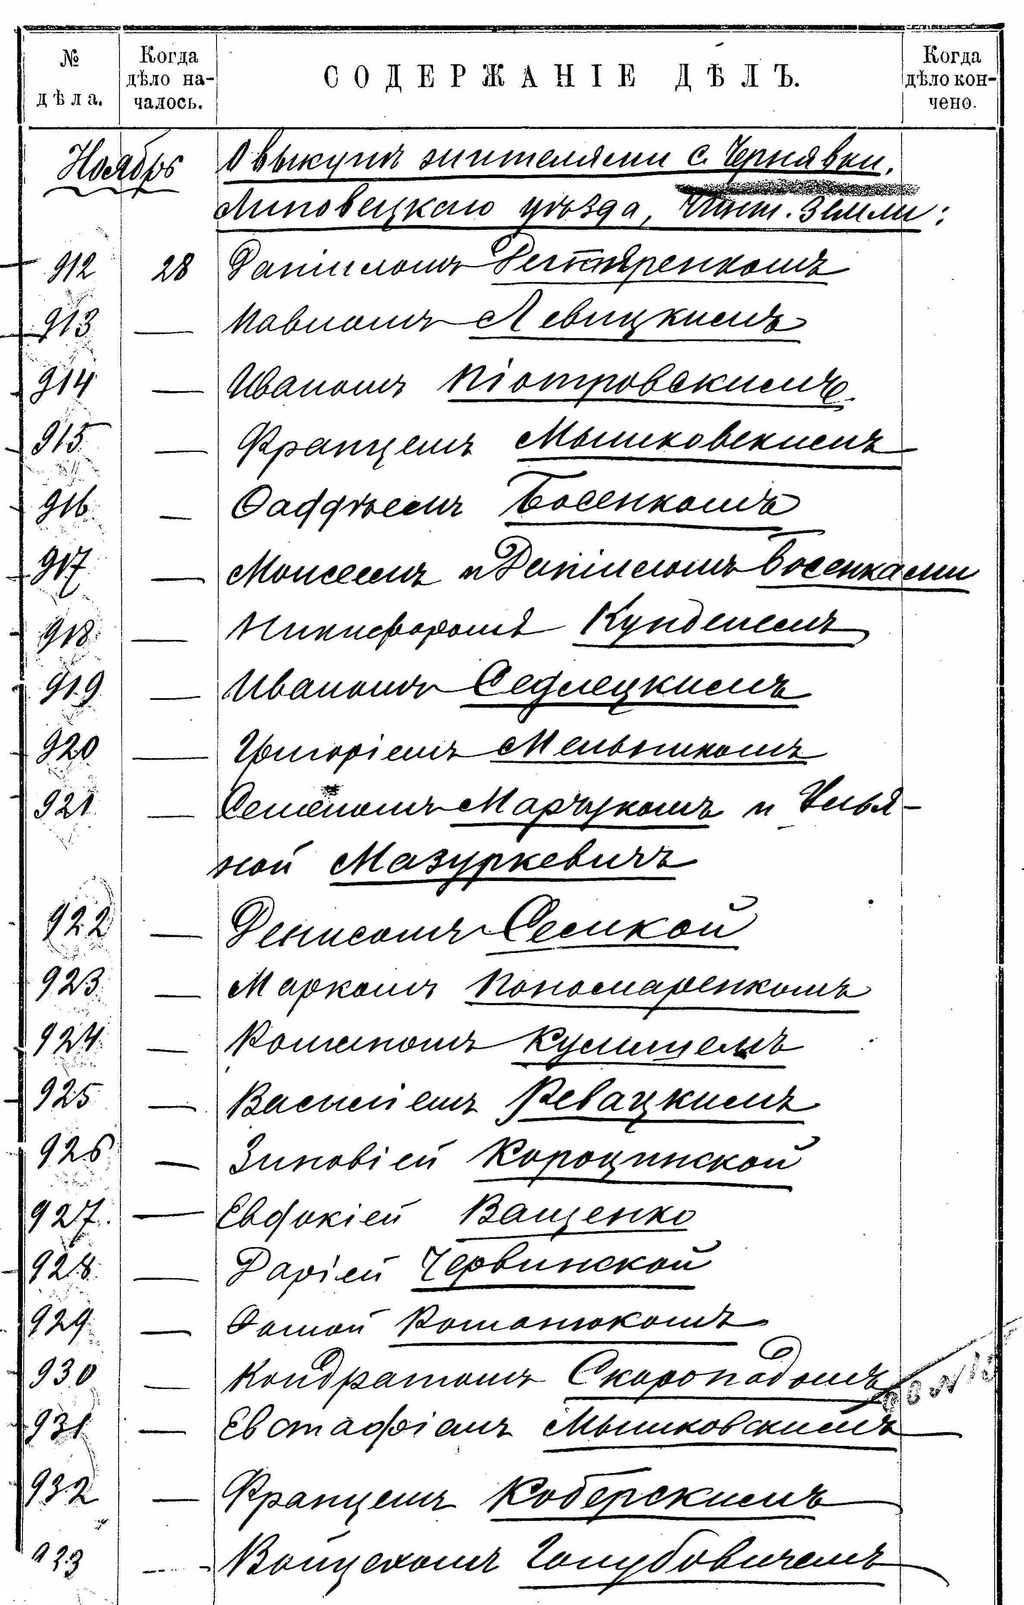 № дѣла.
Когда дѣло началось.
СОДЕРЖАНІЕ ДѢЛЪ.
Когда дѣло кончено.
Ноябрь
О выкупѣ жителями с. Чернявки,
Липовецкаго уѣзда, чинш. земли:
912 28 Даніиломъ Дегтяренкомъ
913 — Павломъ Левицкимъ
914 — Иваномъ Піотровскимъ
915 — Францемъ Мышковскимъ
916 — Фаддѣемъ Босенкомъ
917 — Моисеемъ и Даніиломъ Босенками
918 — Никифоромъ Кунделемъ
919 — Иваномъ Седлецкимъ
920 — Григоріемъ Мельникомъ
921 — Семеномъ Марчукомъ и Улья-
ной Мазуркевичъ
922 — Денисомъ Семкой
923 — Маркомъ Пономаренкомъ
924 — Романомъ
925 — Василіемъ Ревацкимъ
926 — Зиновіей
927. — Евдокіей Ващенко
928 — Даріей Червинской
929 — Фомой Романюкомъ
930 — Кондратомъ Скоропадомъ
931 — Евстафіемъ Мышковскимъ
932 — Францемъ Коберскимъ
933 — Войцехомъ Голубовичемъ